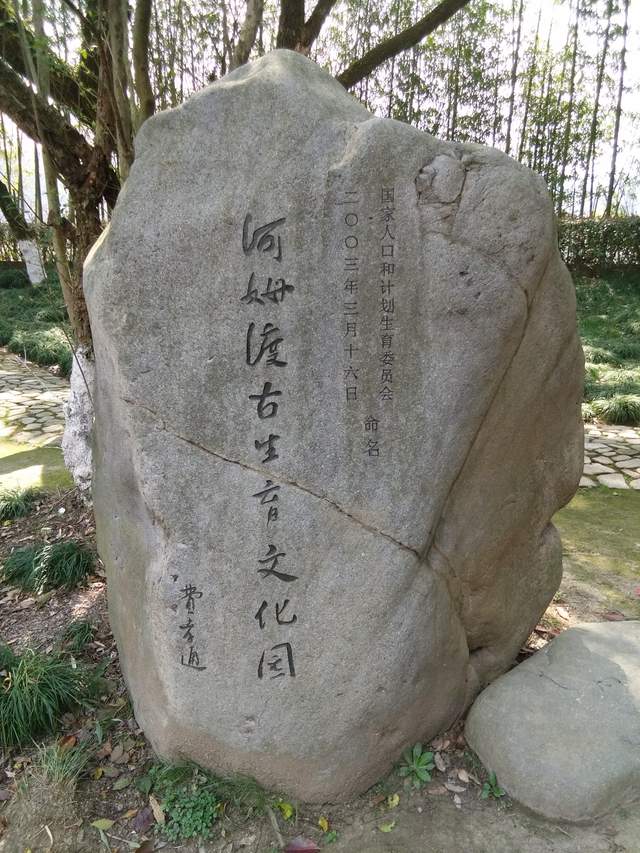 国家人口和计划生育委员会
二〇〇三年三月十六日
命名
河姆渡古生育文化园
费孝通